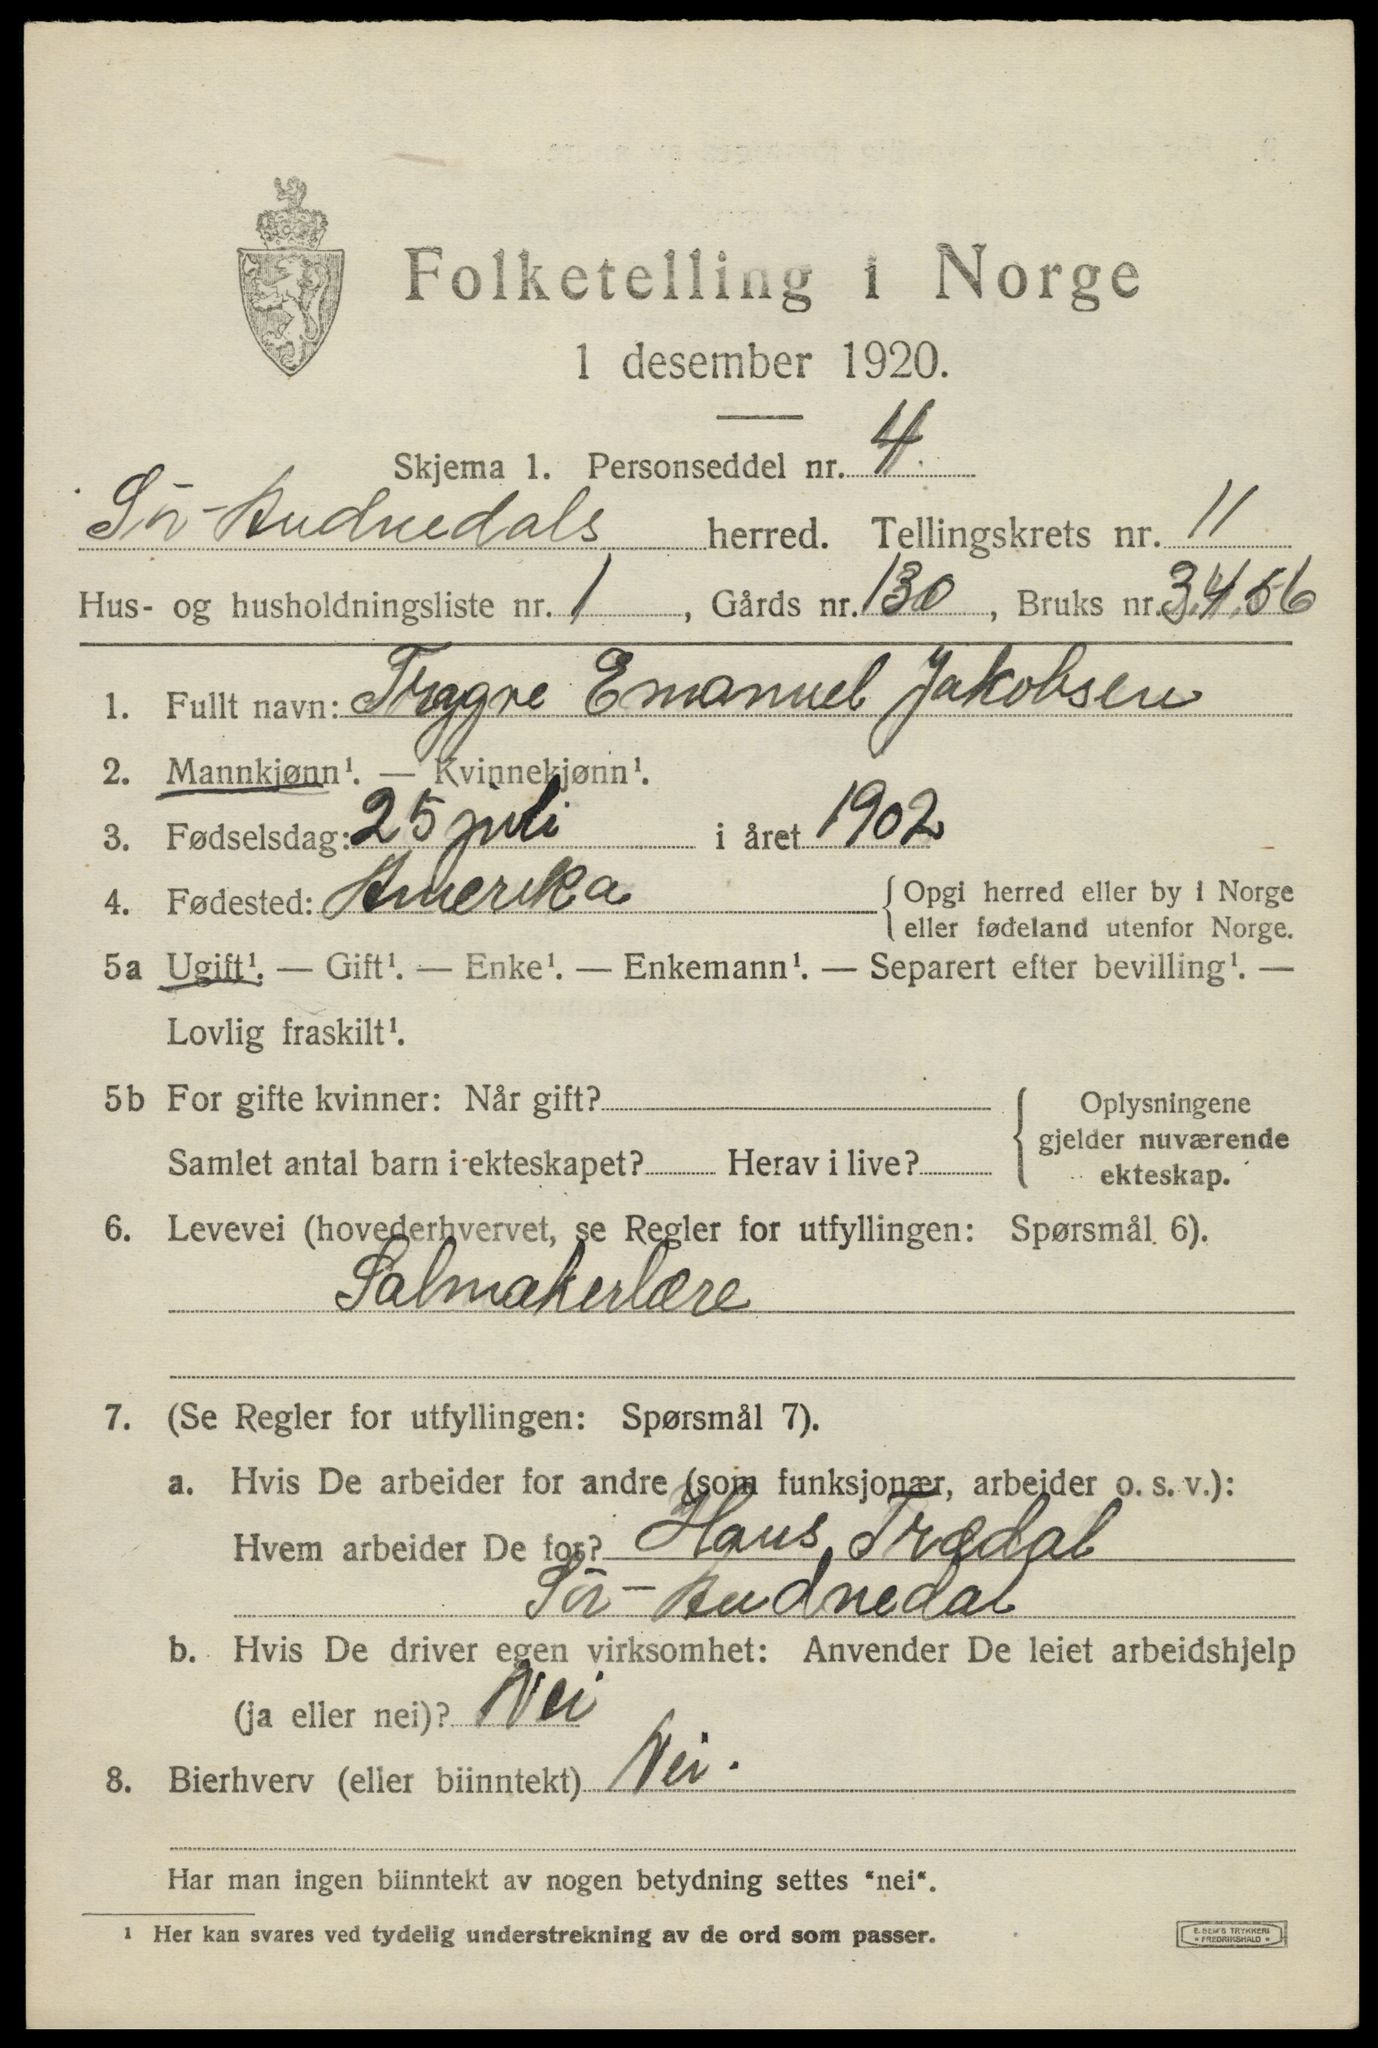 Folketelling i Norge
1 desember 1920.
Skjema 1. Personseddel nr. 4
Sör-Audnedals herred. Tellingskrets nr. 11
Hus- og husholdningsliste nr. 1, Gårds nr. 130, Bruks nr. 3,4,5 6
1. Fullt navn: Trygve Emanuel Jakobsen
2. Mannkjønn¹. — Kvinnekjønn¹.
3. Fødselsdag: 25 juli i året 1902
4. Fødested: Amerika {Opgi herred eller by i Norge
eller fødeland utenfor Norge.
5a Ugift¹. — Gift¹. — Enke¹. — Enkemann¹. — Separert efter bevilling¹. —
Lovlig fraskilt¹.
5b For gifte kvinner: Når gift? Oplysningene
gjelder nuværende
Samlet antal barn i ekteskapet? Herav i live?
ekteskap.
6. Levevei (hovederhvervet, se Regler for utfyllingen: Spørsmål 6).
Salmakerlære
7. (Se Regler for utfyllingen: Spørsmål 7).
a. Hvis De arbeider for andre (som funksjonær, arbeider o. s. v.):
Hvem arbeider De for? Hans Trædal
Sör-Audnedal
b. Hvis De driver egen virksomhet: Anvender De leiet arbeidshjelp
(ja eller nei)? Nei
8. Bierhverv (eller biinntekt) Nei.
Har man ingen biinntekt av nogen betydning settes "nei".
¹ Her kan svares ved tydelig understrekning av de ord som passer.
E. SEM'S TRYKKERI
* FREDRIKSHALD *